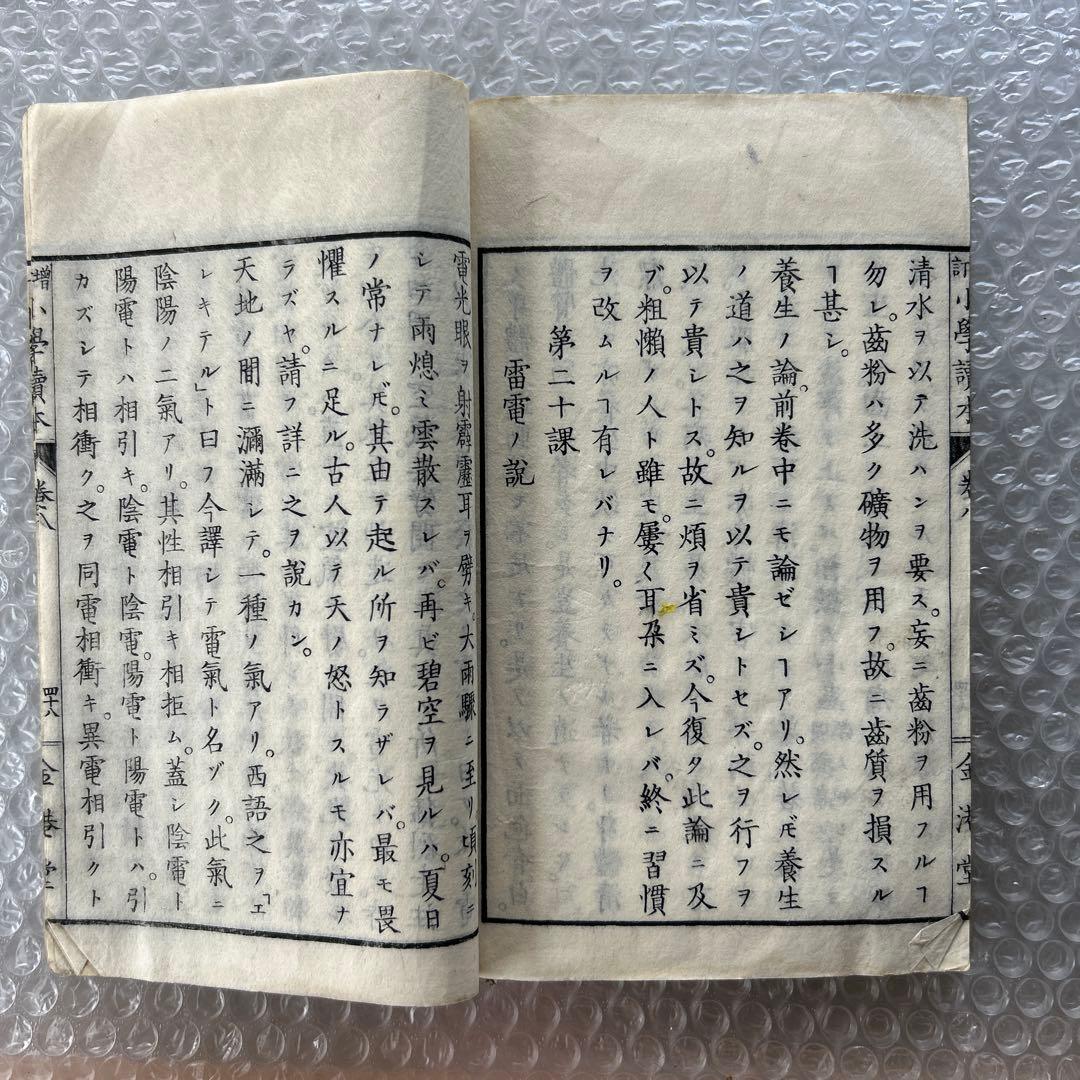 訂小學讀本 卷八 金港堂
清水ヲ以テ洗ハンヲ要ス。妄ニ齒粉ヲ用フルヿ
勿レ。齒粉ハ多ク礦物ヲ用フ。故ニ齒質ヲ損スル
ヿ甚シ。
養生ノ論。前卷中ニモ論ゼシヿアリ。然レ𪜈養生
ノ道ハ之ヲ知ルヲ以テ貴シトセズ。之ヲ行フヲ
以テ貴シトス。故ニ煩ヲ省ミズ。今復タ此論ニ及
ブ。粗懶ノ人ト雖モ。屢〻耳朶ニ入レバ。終ニ習慣
ヲ改ムルヿ有レバナリ。
第二十課
雷電ノ說
雷光眼ヲ射霹靂耳ヲ劈キ。大雨驟ニ至リ頃刻ニ
シテ雨熄ミ雲散スレバ。再ビ碧空ヲ見ルハ。夏日
ノ常ナレ𪜈。其由テ起ル所ヲ知ラザレバ。最モ畏
懼スルニ足ル。古人以テ天ノ怒トスルモ亦宜ナ
ラズヤ。請フ詳ニ之ヲ說カン。
天地ノ間ニ瀰滿シテ。一種ノ氣アリ。西語之ヲ「エ
レキテル」ト曰フ今譯シテ電氣ト名ヅク。此氣ニ
陰陽ノ二氣アリ。其性相引キ相拒ム。蓋シ陰電ト
陽電トハ相引キ。陰電ト陰電。陽電ト陽電トハ。引
カズシテ相衝ク。之ヲ同電相衝キ。異電相引クト
增 小學讀本 卷八 四十八 金港堂